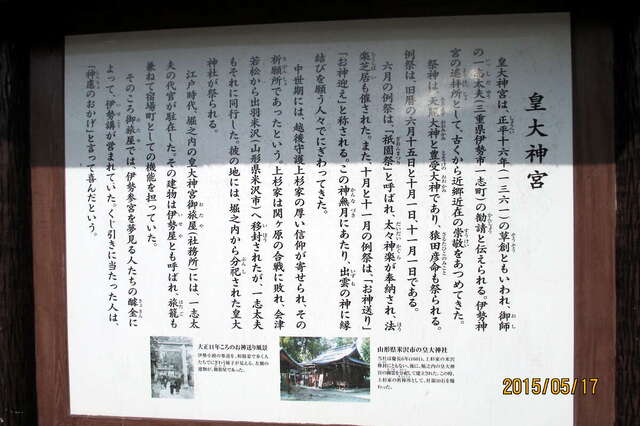 皇大神宮
皇大神宮は、正平十六年(一三六一)の草創ともいわれ、御師
の一志太夫(三重県伊勢市一志町)の勧請と伝えられる。伊勢神
宮の遙拝所として、古くから近郷近在の崇敬をあつめてきた。
祭神は、天照大神と豊受大神であり、猿田彦命も祭られる。
例祭は、旧暦の六月十五日と十月一日、十一月一日である。
六月の例祭は、「祇園祭」と呼ばれ、太々神楽が奉納され、法
楽芝居も催された。また、十月と十一月の例祭は、「お神送り」
「お神迎え」と称される。この神無月にあたり、出雲の神に縁
結びを願う人々でにぎわってきた。
中世期には、越後守護上杉家の厚い信仰が寄せられ、その
祈願所であったという。上杉家は関ヶ原の合戦に敗れ、会津
若松から出羽米沢(山形県米沢市)へ移封されたが、一志太夫
もそれに同行した。彼の地には、堀之内から分祀された皇大
神社が祭られる。
江戸時代、堀之内の皇大神宮御旅屋(社務所)には、一志太
夫の代官が駐在した。その建物は伊勢屋とも呼ばれ、旅籠も
兼ねて宿場町としての機能を担っていた。
そのころ御旅屋では、伊勢参宮を夢見る人たちの醵金に
よって、伊勢講が営まれていた。くじ引きに当たった人は、
「神慮のおかげ」と言って喜んだという。
大正11年ころのお神送り風景
山形県米沢市の皇大神社
2015/05/17